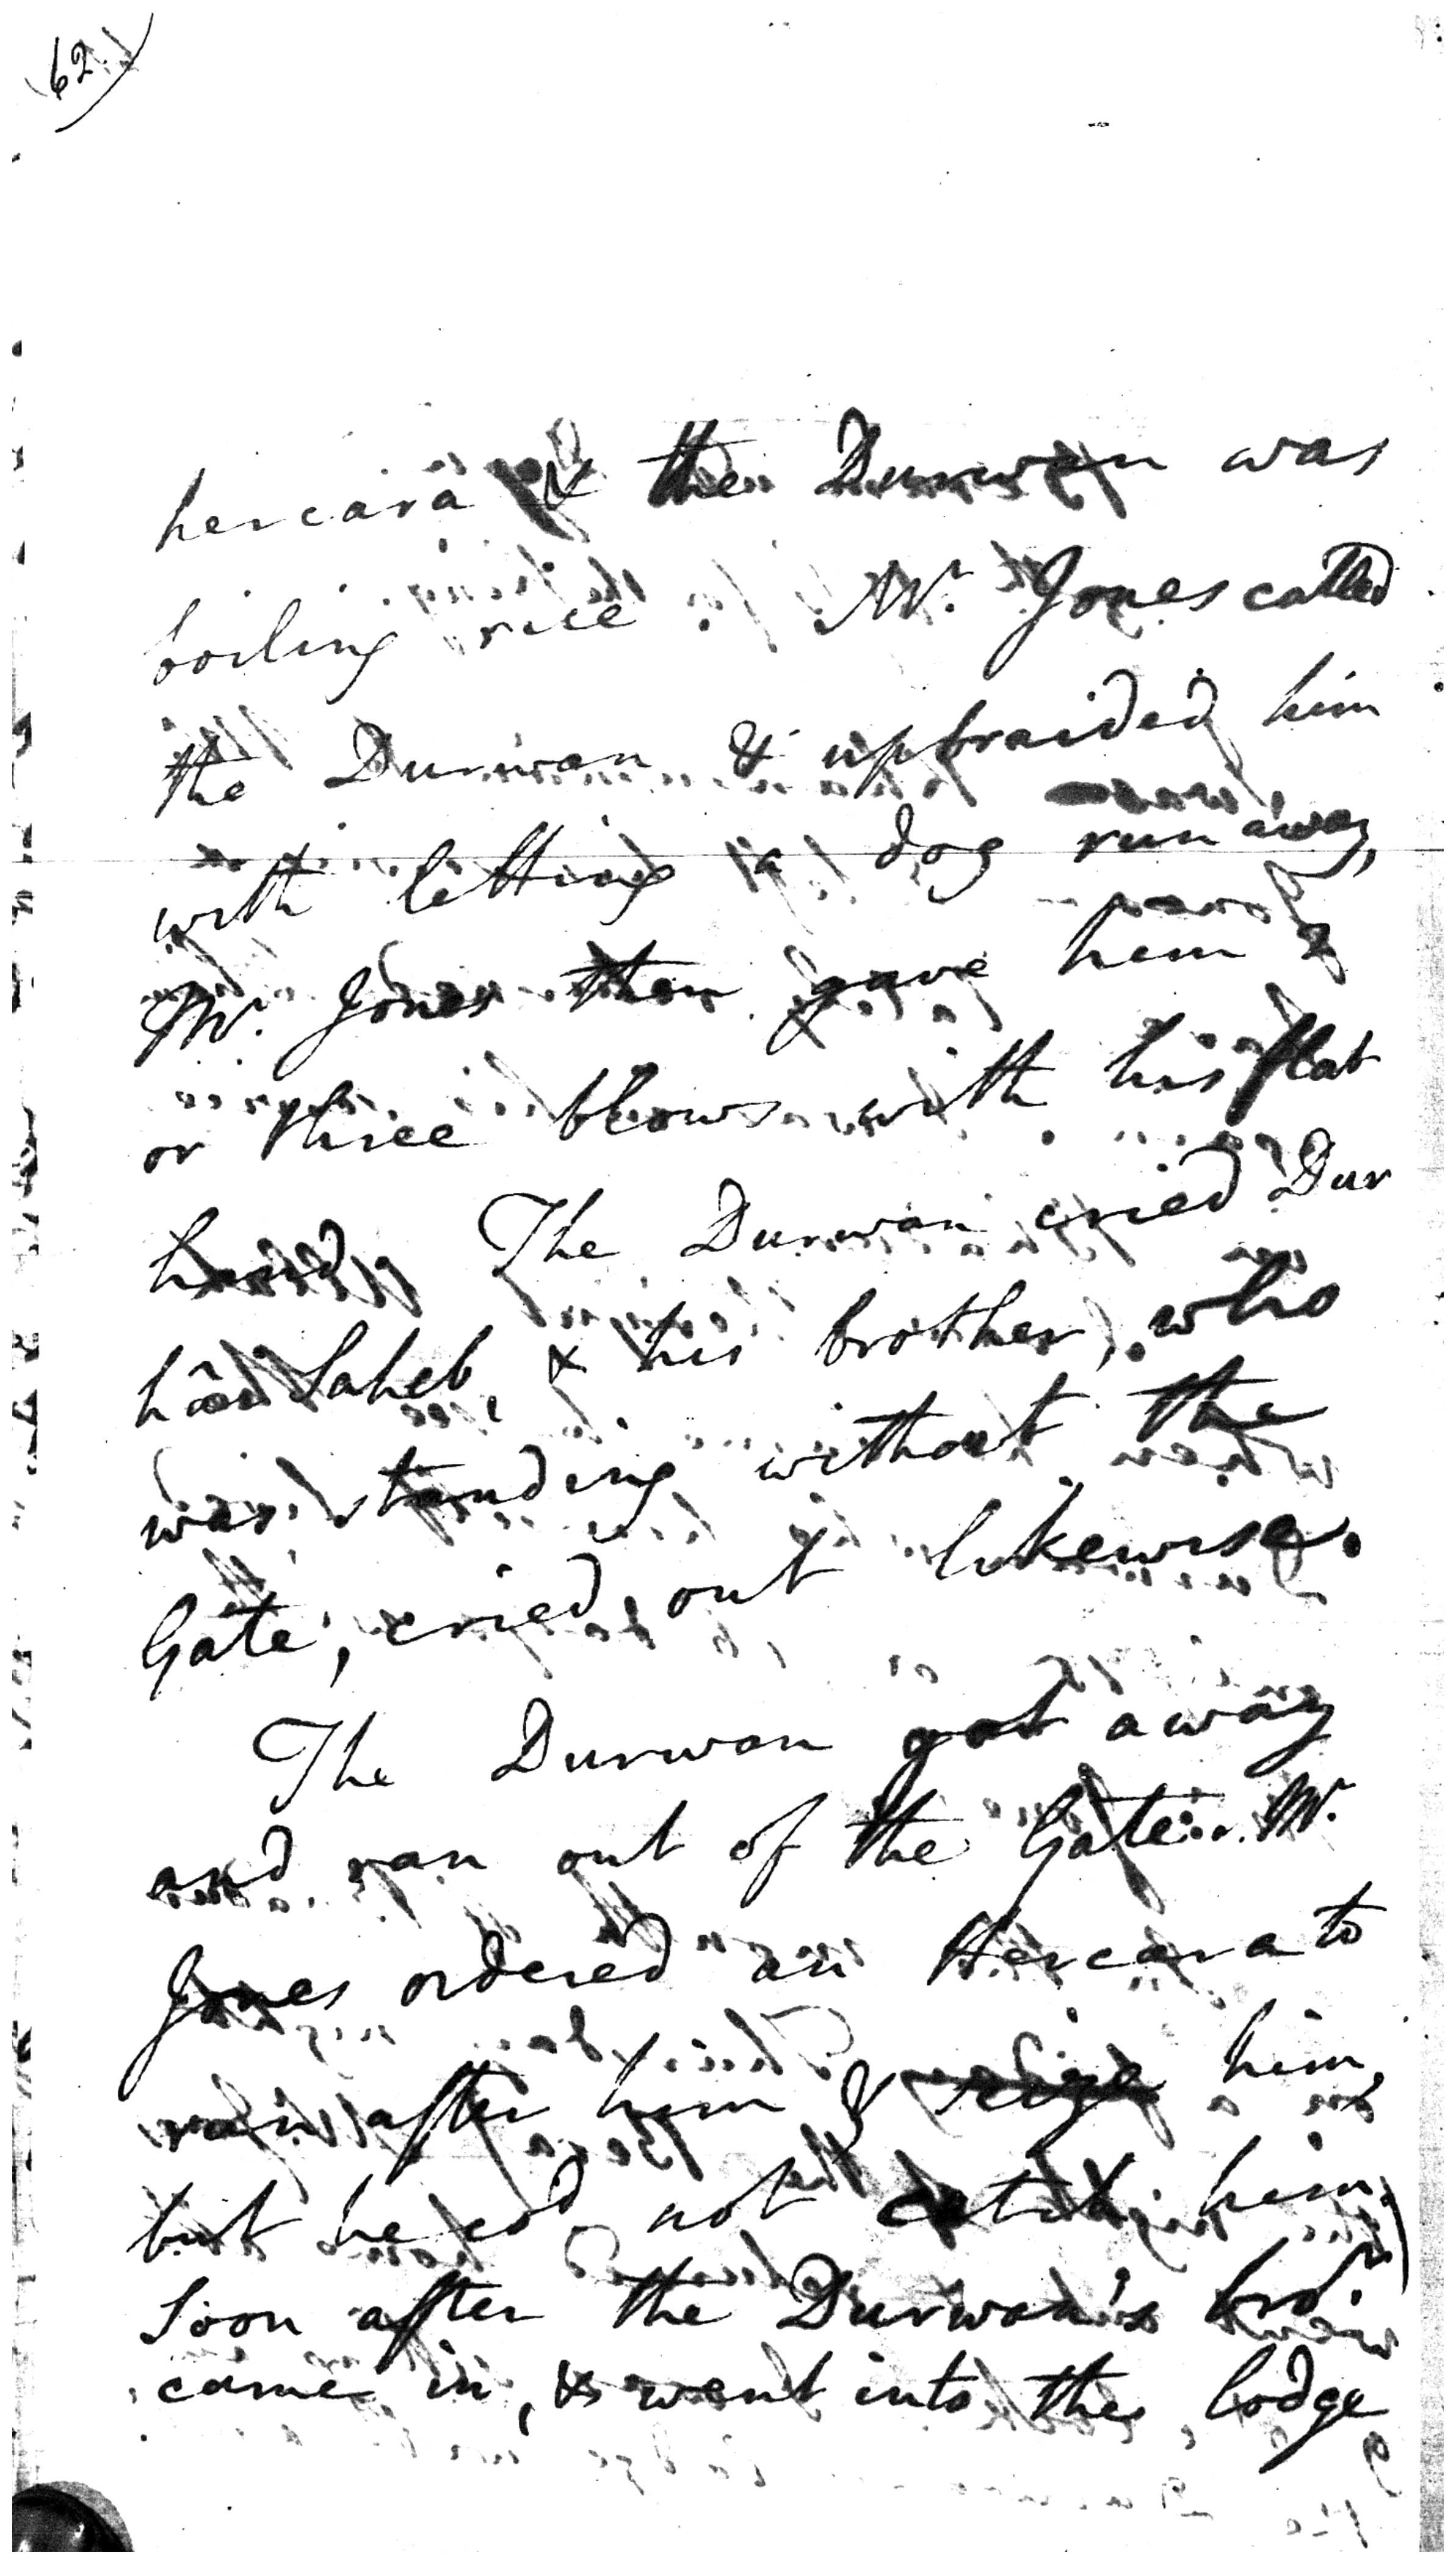 (62)
hercara & the Durwan was
boiling rice. Mr. Jones called
the Durwan & upbraided him
with letting a dog run away,
Mr. Jones then gave him 2
or three blows with his flat
hand. The Durwan cried Dur
Saheb, & his brother, who
was standing without the
Gate, cried out likewise.
The Durwan got away
and ran out of the Gate. Mr.
Jones ordered an Hercara to
run after him & seize him,
but he cod. not catch him.
Soon after the Durwan's bror.
came in, & went into the lodge